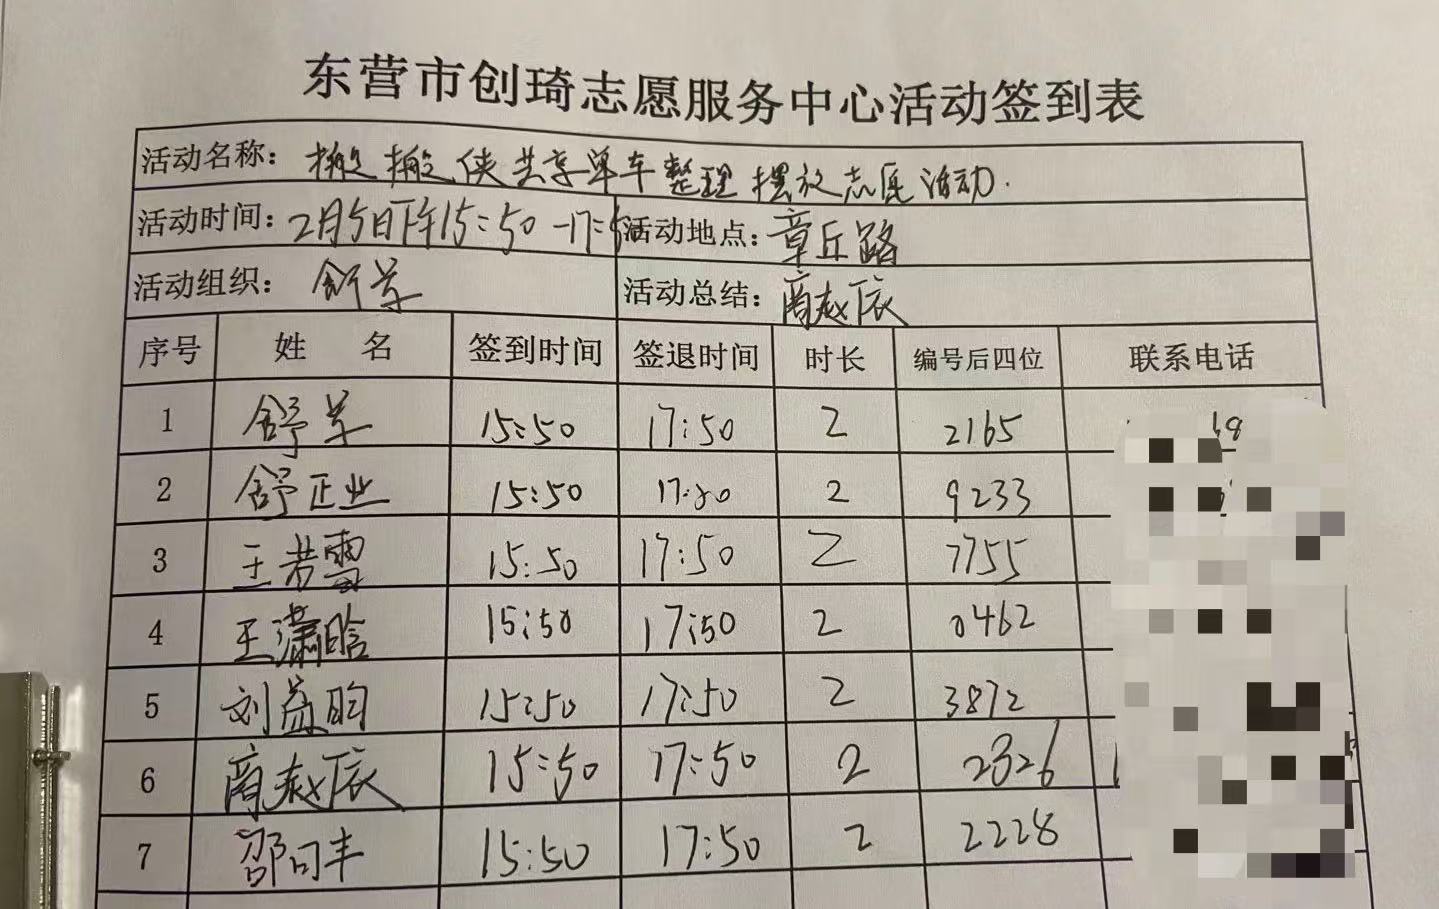 东营市创琦志愿服务中心活动签到表
活动名称: 搬搬侠共享单车整理摆放志愿活动.
活动时间: 2月5日下午15:50-17:50 活动地点: 章丘路
活动组织: 舒 活动总结: 商赵辰
序号 姓 名 签到时间 签退时间 时长 编号后四位 联系电话
1 舒 15:50 17:50 2 2165
2 舒正业 15:50 17:50 2 9233
3 王若雪 15:50 17:50 2 7755
4 王潇晗 15:50 17:50 2 0462
5 刘益昀 15:50 17:50 2 3872
6 商赵辰 15:50 17:50 2 2326
7 邵同丰 15:50 17:50 2 2228